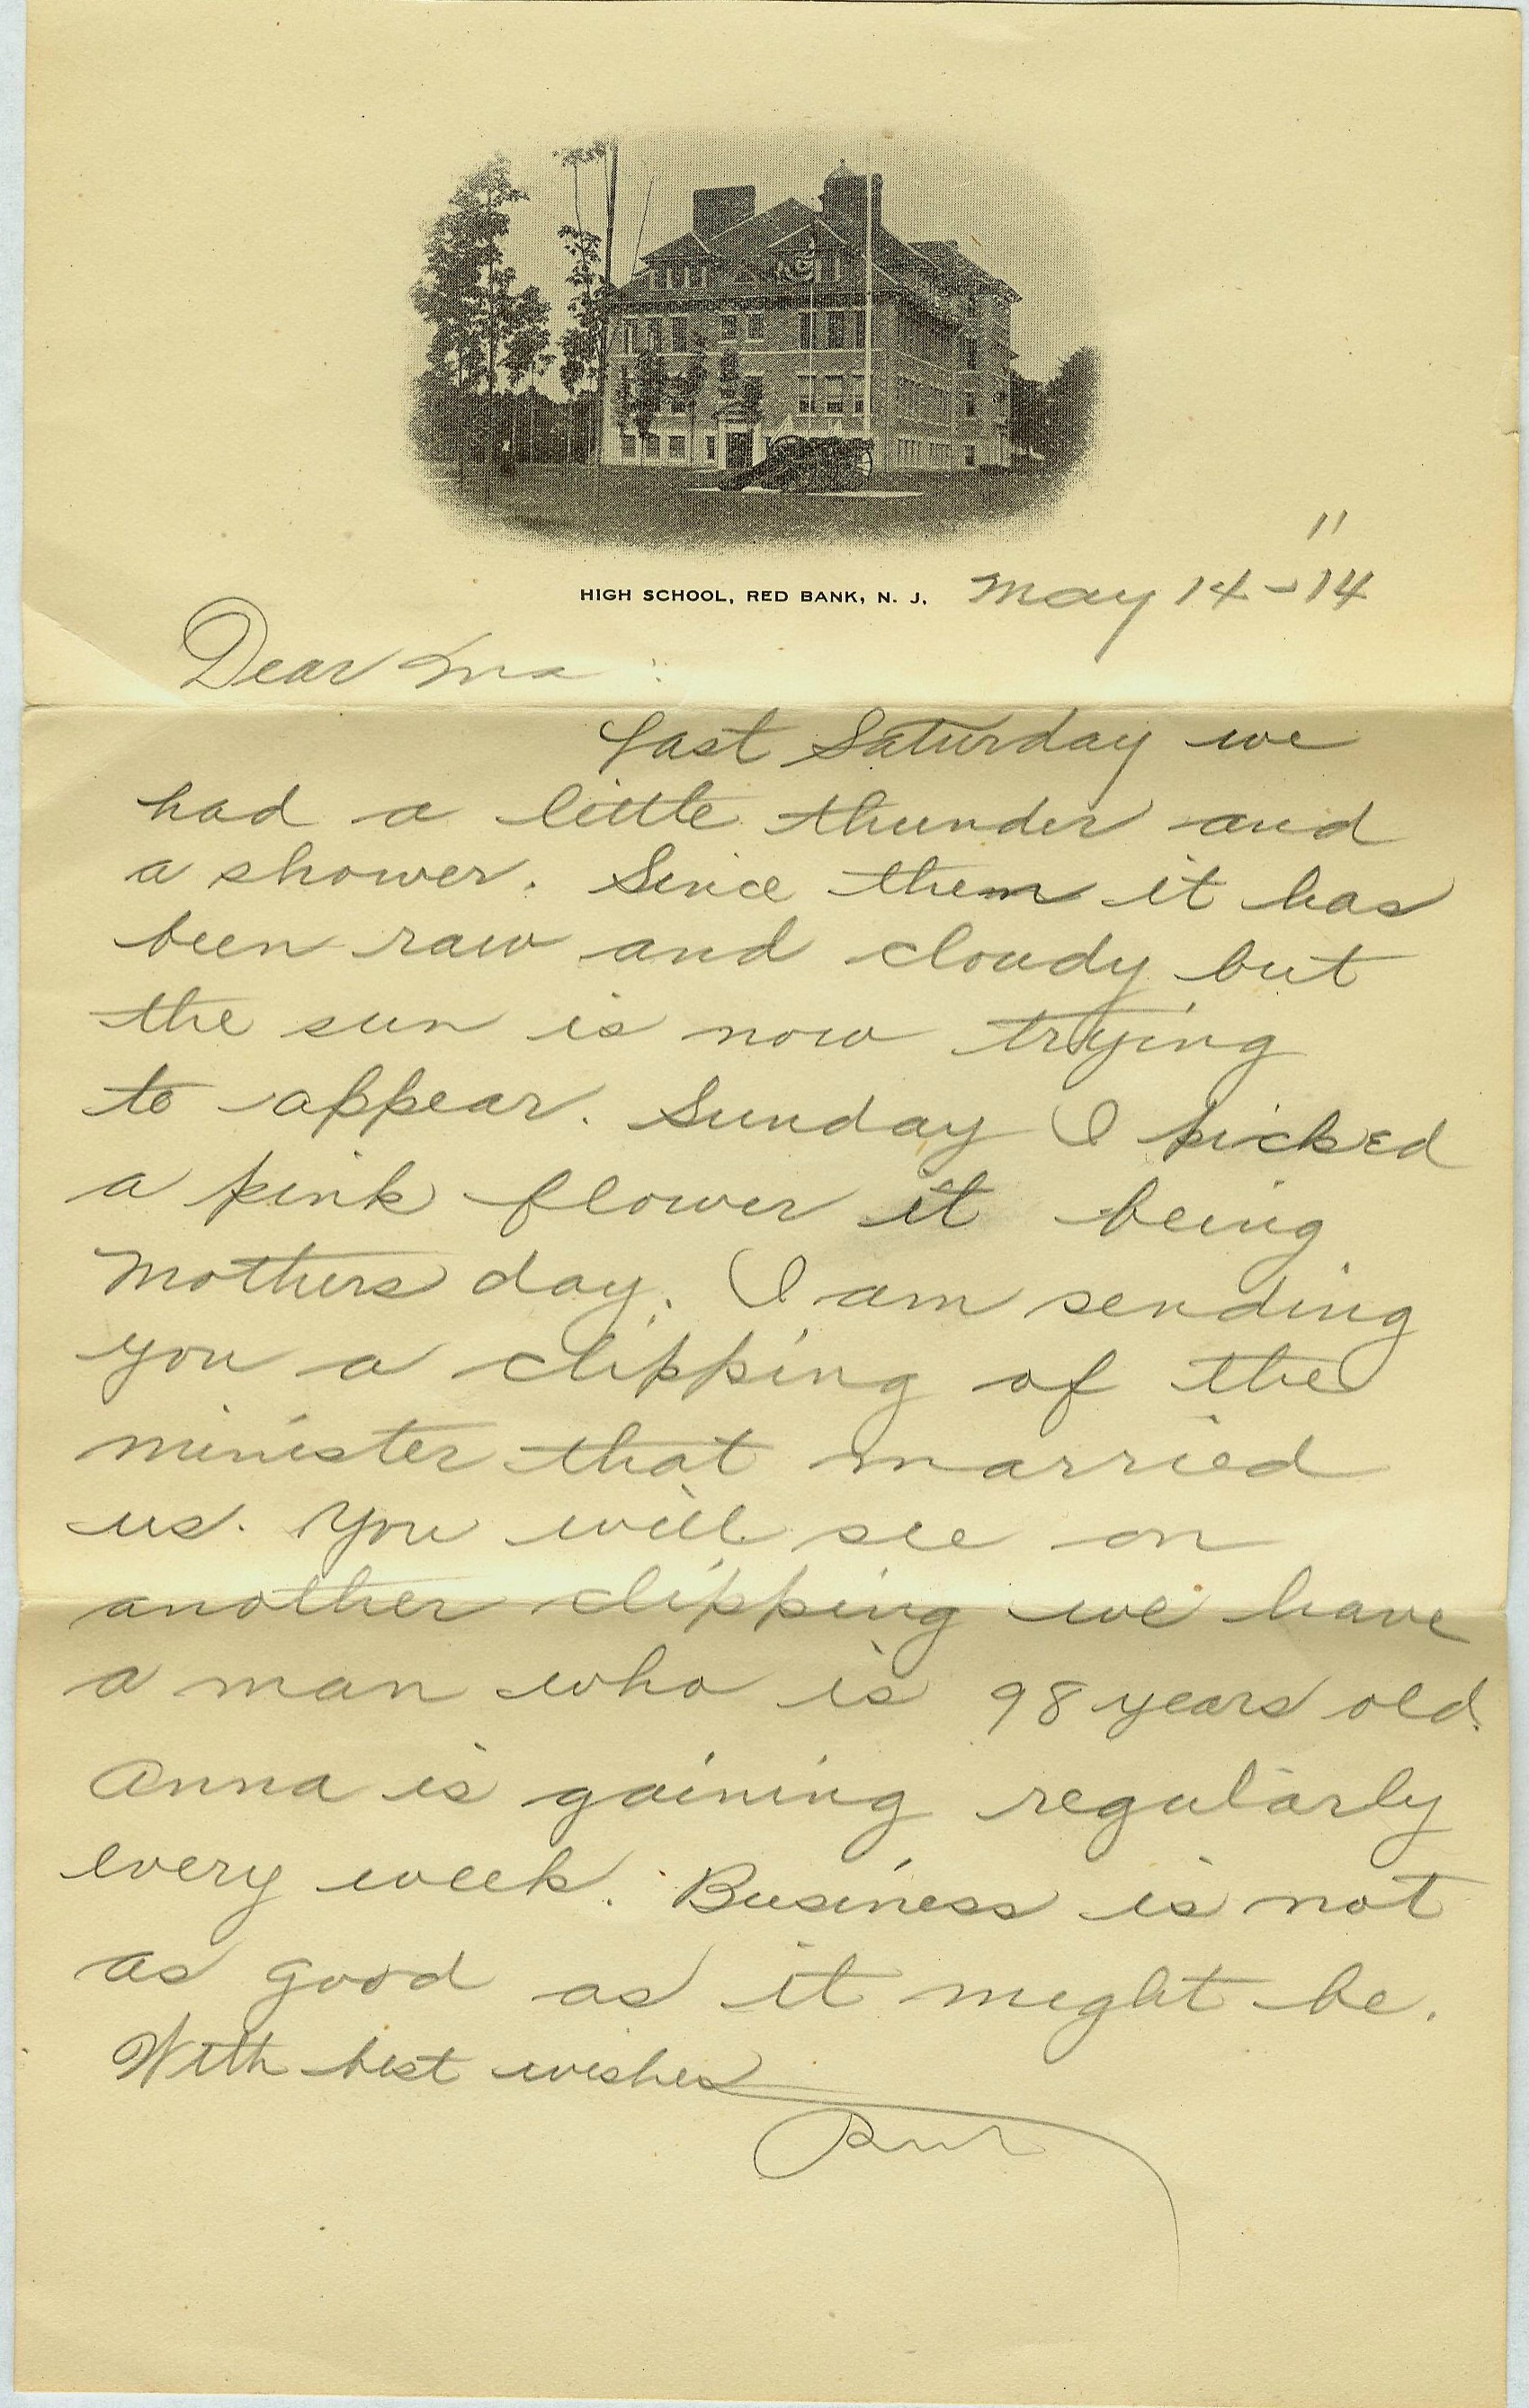 HIGH SCHOOL, RED BANK, N. J. May 14 - "14
Dear Ma :
Last Saturday we
had a little thunder and
a shower. Since then it has
been raw and cloudy but
the sun is now trying
to appear. Sunday I picked
a pink flower it being
Mothers day. I am sending
you a clipping of the
minister that married
us. You will see on
another clipping we have
a man who is 98 years old.
Anna is gaining regularly
every week. Business is not
as good as it might be.
With best wishes